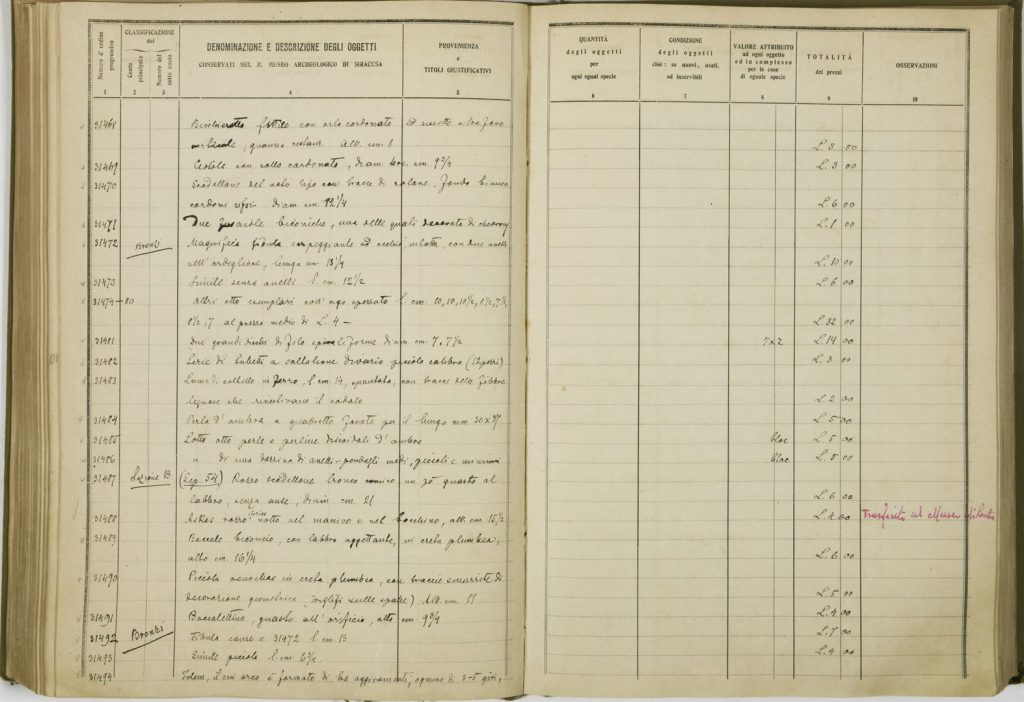 Numero d'ordine progressivo
CLASSIFICAZIONE del
Conto principale
Numero del sotto conto
DENOMINAZIONE E DESCRIZIONE DEGLI OGGETTI
CONSERVATI NEL R. MUSEO ARCHEOLOGICO DI SIRACUSA
PROVENIENZA
e
TITOLI GIUSTIFICATIVI
QUANTITÀ
degli oggetti
per
ogni egual specie
CONDIZIONE
degli oggetti
cioè: se nuovi, usati,
od inservibili
VALORE ATTRIBUITO
ad ogni oggetto
od in complesso
per le cose
di eguale specie
TOTALITÀ
dei prezzi
OSSERVAZIONI
1 2 3 4 5 6 7 8 9 10
31468 Bicchieretto fittile con orlo carbonato
alt. cm. 8 L. 3 00
31469 Ciotola con collo carbonato, diam. cm. 9 3/4 L. 3 00
31470 Scodellone del noto tipo con tracce di fondo bianco
diam. cm. 12 1/4 L. 6 00
31471 Due fusarole biconiche, una delle quali decorata di L. 1 00
31472 Bronzi Magnifica fibula serpeggiante ad occhio, con due anelli
nell'ardiglione, lunga cm. 13 1/4 L. 10 00
31473 Simile senza anelli l. cm. 12 1/2 L. 6 00
31474-80 Altri otto esemplari coll'ago spezzato l. cm. 10, 10, 10 1/2, 8 1/2, 7 1/2,
8 1/2, 7 al prezzo medio di L. 4 — L. 32 00
31481 Due grandi dischi di filo spiraliforme diam. cm. 7, 7 1/2 7x2 L. 14 00
31482 Serie di tubetti a saltaleone di vario piccolo calibro (12 pezzi) L. 3 00
31483 Lama di coltello in ferro, l. cm. 14, spuntata, con tracce delle fibbre
legnose che rivestivano il codolo L. 2 00
31484 Perla d'ambra a quadretto forato per il lungo mm 30 x 27 L. 5 00
31485 Lotto otto perle e perline discoidali d'ambra bloc L. 5 00
31486 " di una dozzina di anelli-pendagli medi, piccoli e minimi bloc L. 5 00
31487 (Seg. 54) Rozzo scodellone tronco conico, un pò guasto al
labbro, senza anse, diam. cm. 21 L. 6 00
31488 Askos rozzo rotto nel manico e nel bocchino, alt. cm. 15 1/2 L. 4 00 Trasferito al Museo di
31489 Boccale biconico, con labbro aggettante, in creta plumbea,
alto cm. 16 1/4 L. 6 00
31490 Piccola oenochoe in creta plumbea, con traccie smarrite di
decorazione geometrica (triglifi sulle spalle) Alt. cm. 11 L. 5 00
31491 Boccalettino, guasto all'orificio, alto cm. 9 3/4 L. 4 00
31492 Bronzi Fibula come n. 31472 l. cm. 13 L. 7 00
31493 Simile piccola l. cm. 6 3/4 L. 4 00
31494 Idem, il cui arco è formato di tre aggiramenti, ognuno di 3-5 giri,